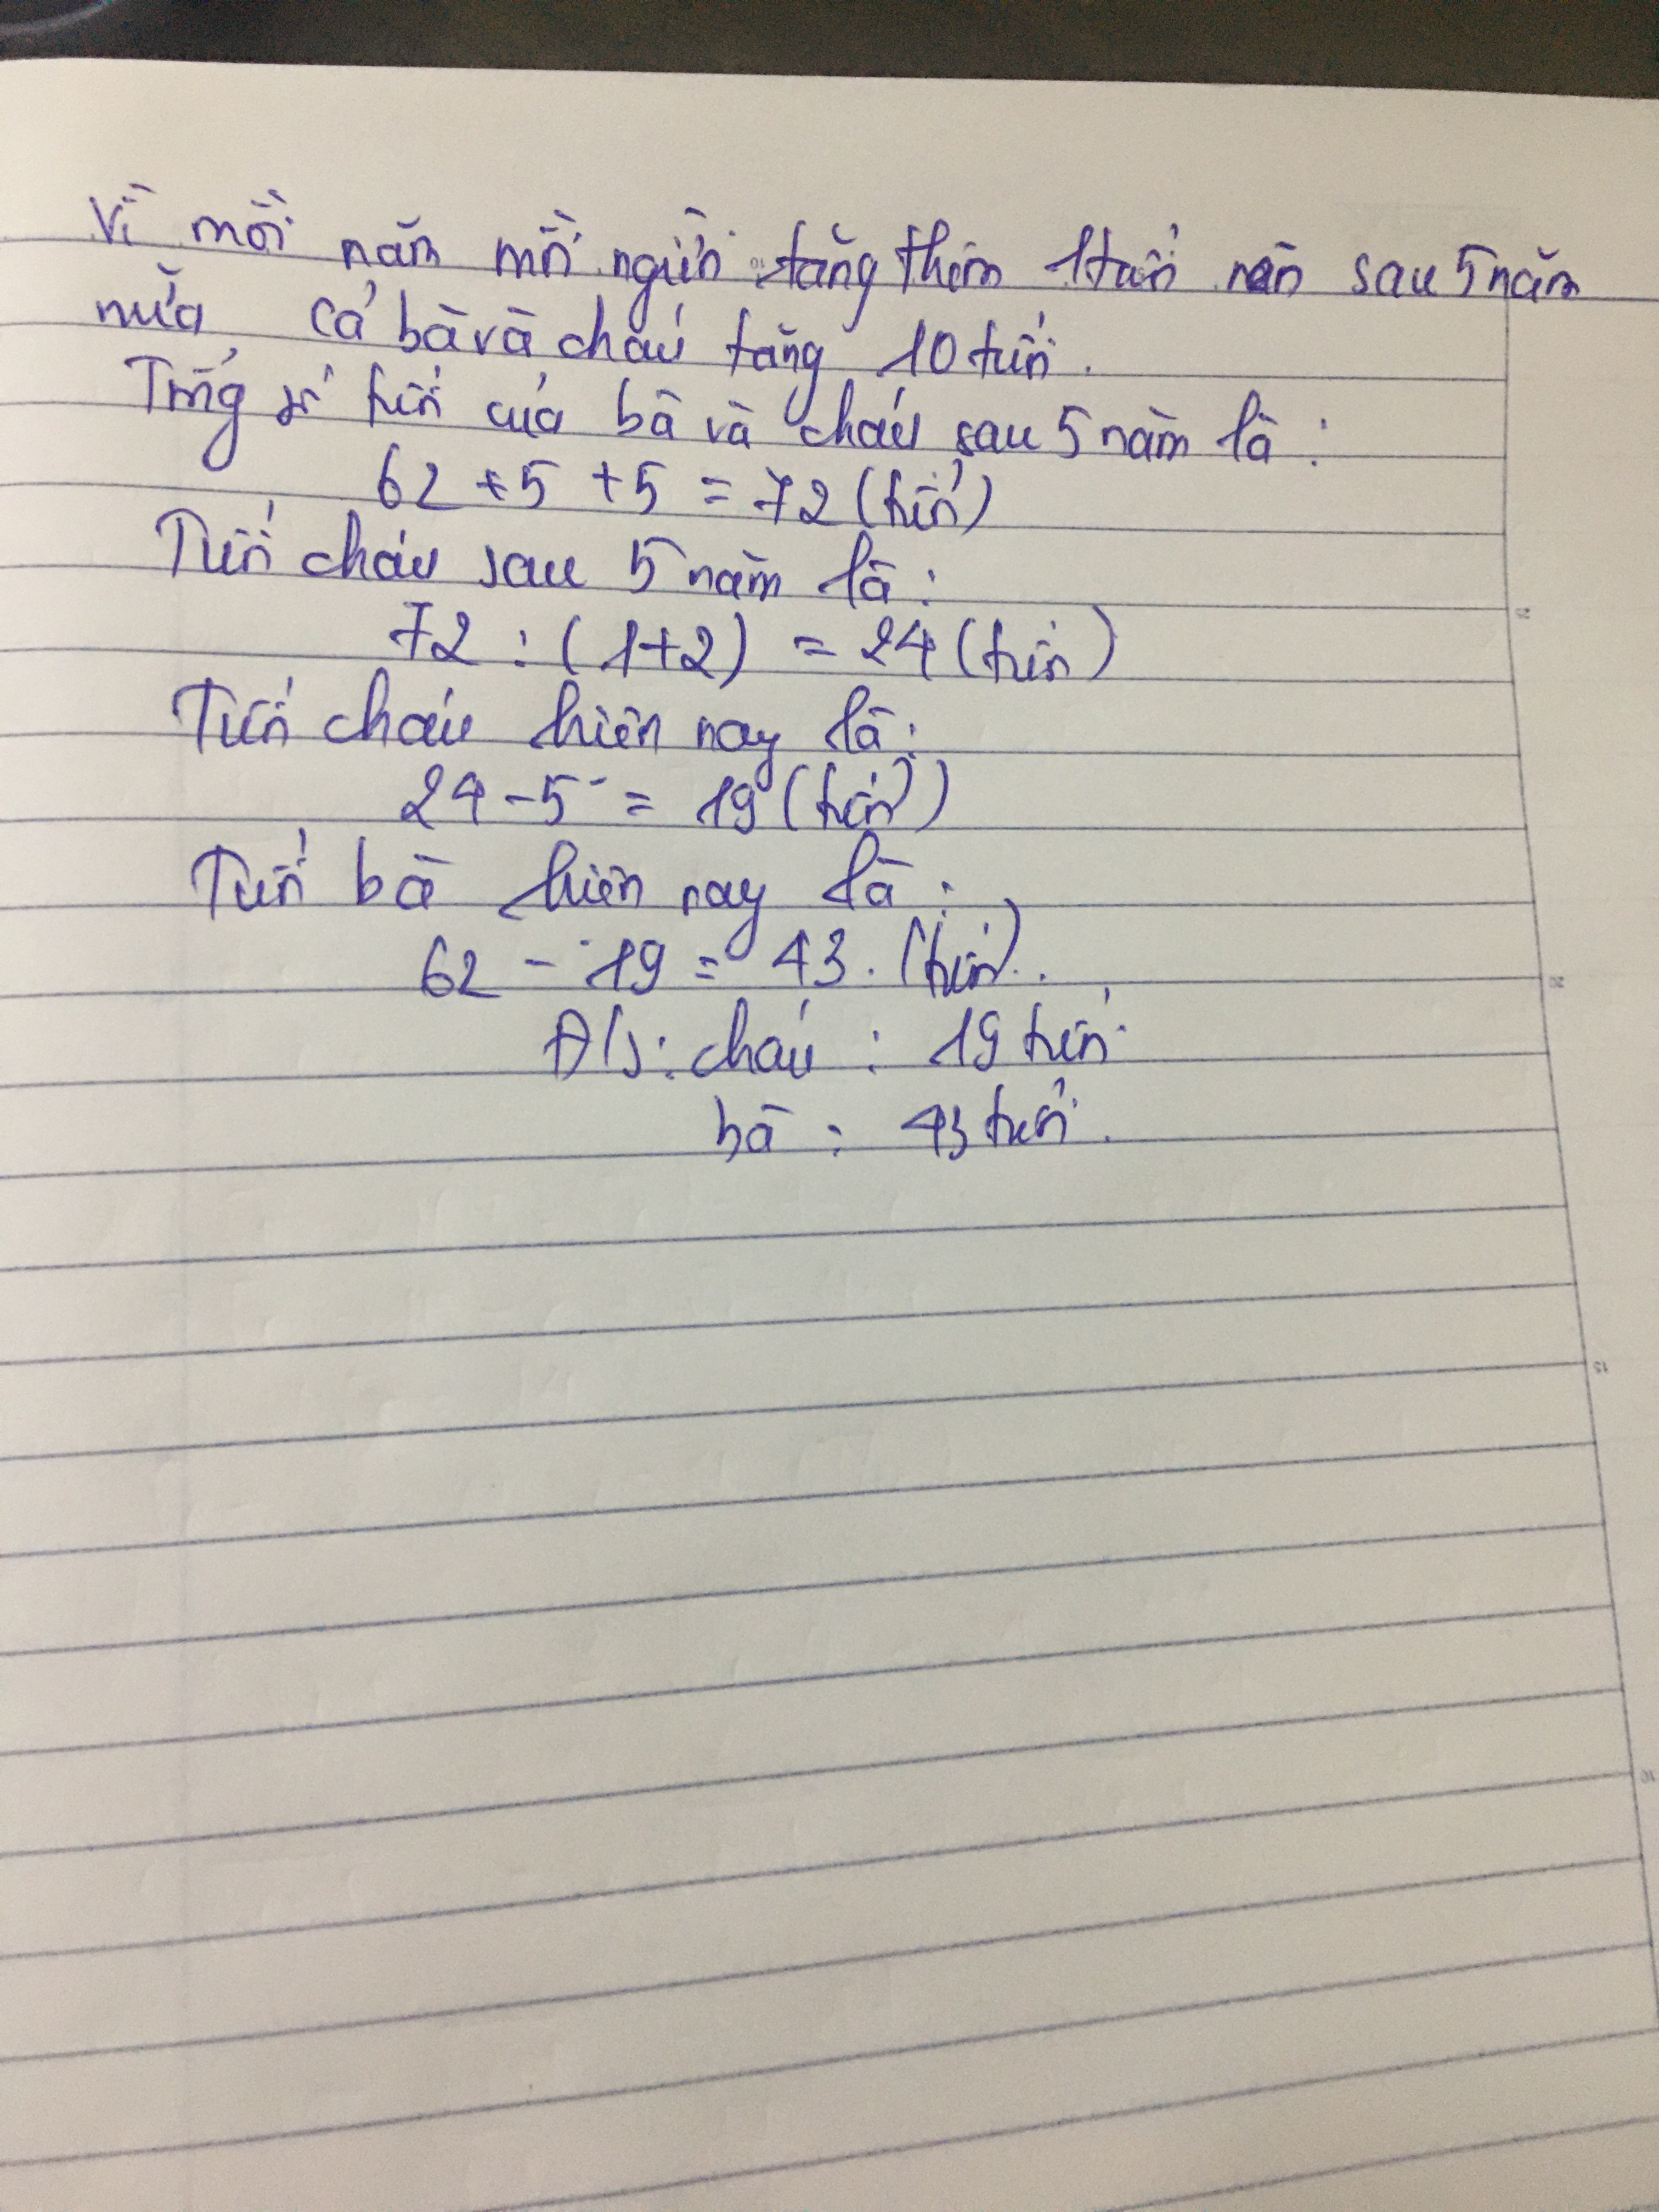 Vì mỗi năm mỗi người tăng thêm 1 tuổi nên sau 5 năm
nữa cả bà và cháu tăng 10 tuổi.
Tổng số tuổi của bà và cháu sau 5 năm là:
62 + 5 + 5 = 72 (tuổi)
Tuổi cháu sau 5 năm là:
72 : (1+2) = 24 (tuổi)
Tuổi cháu hiện nay là:
24 - 5 = 19 (tuổi)
Tuổi bà hiện nay là:
62 - 19 = 43. (tuổi).
Đ/s: cháu : 19 tuổi
bà : 43 tuổi.